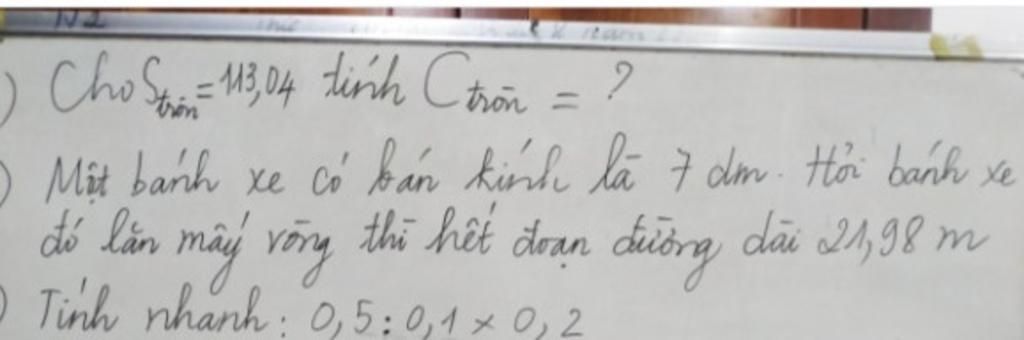 N2
) Cho S tròn = 113,04 tính C tròn = ?
) Một bánh xe có bán kính là 7 dm. Hỏi bánh xe
đó lăn mấy vòng thì hết đoạn đường dài 21,98 m
) Tính nhanh: 0,5 : 0,1 × 0,2